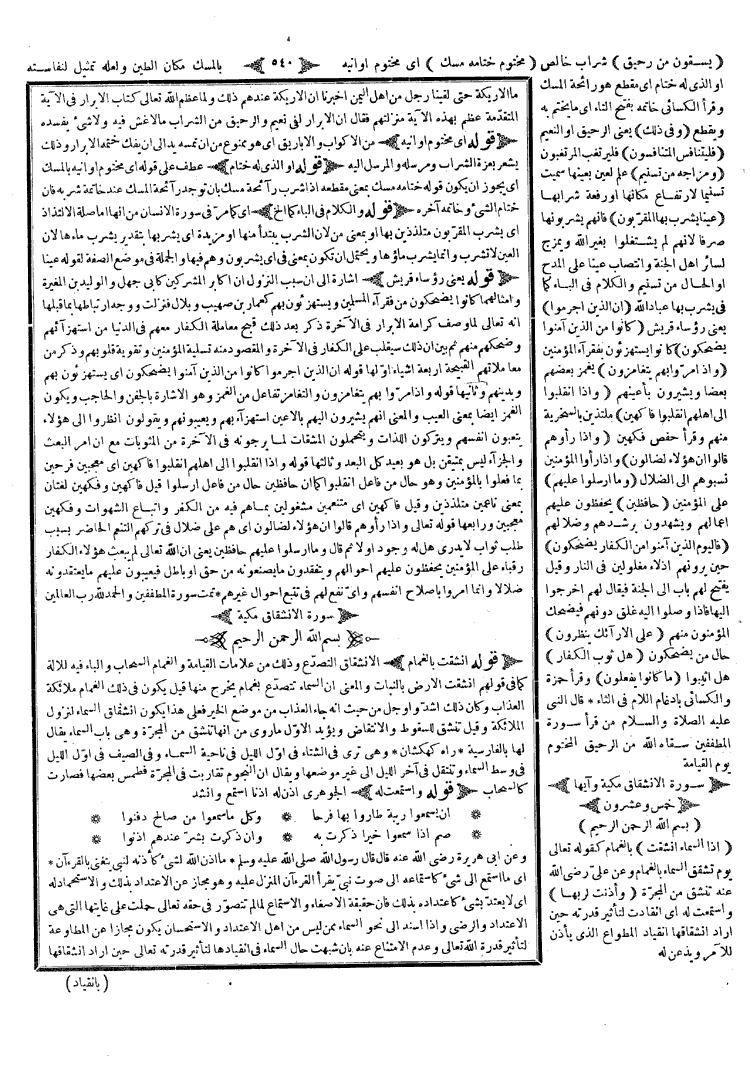 ( يسقون من رحيق ) شراب خالص ( مختوم ختامه مسك ) اى مختوم اوانيه ﴿ ٥٤٠ ﴾ بالمسك مكان الطين ولعله تمثيل لنفاسته
او الذى له ختام اى مقطع هو رائحة المسك
وقرأ الكسائى خاتمه بفتح التاء اى مايختم به
ويقطع ( وفى ذلك ) يعنى الرحيق او النعيم
( فليتنافس المتنافسون ) فليرتغب المرتغبون
( ومزاجه من تسنيم ) علم لعين بعينها سميت
تسنيما لارتفاع مكانها اورفعة شرابها
( عينا يشرب بها المقربون ) فانهم يشربونها
صرفا لانهم لم يشتغلوا بغير الله ويمزج
لسائر اهل الجنة وانتصاب عينا على المدح
او الحال من تسنيم والكلام فى الباء كما
فى يشرب بها عباد الله ( ان الذين اجرموا )
يعنى رؤساء قريش ( كانوا من الذين آمنوا
يضحكون ) كانوا يستهزئون بفقرآء المؤمنين
( واذا مروا بهم يتغامزون ) يغمز بعضهم
بعضا ويشيرون بأعينهم ( واذا انقلبوا
الى اهلهم انقلبوا فاكهين ) ملتذين بالسخرية
منهم وقرأ حفص فكهين ( واذا رأوهم
قالوا ان هؤلاء لضالون ) واذا رأوا المؤمنين
نسبوهم الى الضلال ( وما ارسلوا عليهم )
على المؤمنين ( حافظين ) يحفظون عليهم
اعمالهم ويشهدون برشدهم وضلالهم
( فاليوم الذين آمنوا من الكفار يضحكون )
حين يرونهم اذلاء مغلولين فى النار وقيل
يفتح لهم باب الى الجنة فيقال لهم اخرجوا
اليها فاذا وصلوا اليه غلق دونهم فيضحك
المؤمنون منهم ( على الارآئك ينظرون )
حال من يضحكون ( هل ثوب الكفار )
هل اثيبوا ( ما كانوا يفعلون ) وقرأ حمزة
والكسائى بادغام اللام فى الثاء * قال النبى
عليه الصلاة والسلام من قرأ سورة
المطففين سقاه الله من الرحيق المختوم
يوم القيامة
﴿ سورة الانشقاق مكية وآيها ﴾
﴿ خمس وعشرون ﴾
( بسم الله الرحمن الرحيم )
( اذا السماء انشقت ) بالغمام كقوله تعالى
يوم تشقق السماء بالغمام وعن على رضى الله
عنه تنشق من المجرة ( وأذنت لربها )
واستمعت له اى انقادت لتأثير قدرته حين
اراد انشقاقها انقياد المطواع الذى يأذن
للآمر ويذعن له
ما الاريكة حتى لقينا رجل من اهل اليمن اخبرنا ان الاريكة عندهم ذلك ولما عظم الله تعالى كتاب الابرار فى الآية
المتقدمة عظم بهذه الآية منزلتهم فقال ان الابرار لفى نعيم والرحيق من الشراب ما لاغش فيه ولا شئ يفسده
﴿ قوله اى مختوم اوانيه ﴾ من الاكواب والاباريق اى هو ممنوع من ان تمسه يد الى ان يفك ختمه الابرار وذلك
يشعر بعزة الشراب ومرسله والمرسل اليه ﴿ قوله او الذى له ختام ﴾ عطف على قوله اى مختوم اوانيه بالمسك
اى يجوز ان يكون قوله ختامه مسك بمعنى مقطعه اذا شرب رآئحة مسك بان توجد رآئحة المسك عند خاتمة شربه فان
ختام الشئ وخاتمه آخره ﴿ قوله والكلام فى الباء كما الخ ﴾ اى كما مرّ فى سورة الانسان من انها اما صلة الالتذاذ
اى يشرب المقربون متلذذين بها او بمعنى من لان الشرب يبتدأ منها او مزيدة اى يشربها بتقدير يشرب ماءها لان
العين لا تشرب وانما يشرب ماؤها ويحتمل ان تكون بمعنى فى اى يشربون وهم فيها والجملة فى موضع الصفة لقوله عينا
﴿ قوله يعنى رؤساء قريش ﴾ اشارة الى ان سبب النزول ان اكابر المشركين كابى جهل والوليد بن المغيرة
وامثالهما كانوا يضحكون من فقرآء المسلمين ويستهزئون بهم كعمار بن صهيب وبلال فنزلت ووجه ارتباطها بما قبلها
انه تعالى لما وصف كرامة الابرار فى الآخرة ذكر بعد ذلك قبيح معاملة الكفار معهم فى الدنيا من استهزآئهم
وضحكهم منهم ثم بين ان ذلك سيقلب على الكفار فى الآخرة والمقصود منه تسلية المؤمنين وتقوية قلوبهم وذكر من
معاملاتهم القبيحة اربعة اشياء اولها قوله ان الذين اجرموا كانوا من الذين آمنوا يضحكون اى يستهزئون بهم
وبدينهم وثانيها قوله واذا مروا بهم يتغامزون والتغامز تفاعل من الغمز وهو الاشارة بالجفن والحاجب ويكون
الغمز ايضا بمعنى العيب والمعنى انهم يشيرون اليهم بالاعين استهزآء بهم ويعيبونهم ويقولون انظروا الى هؤلاء
يتعبون انفسهم ويتركون اللذات ويتحملون المشقات لما يرجونه فى الآخرة من المثوبات مع ان امر البعث
والجزآء ليس بمتيقن بل هو بعيد كل البعد وثالثها قوله واذا انقلبوا الى اهلهم انقلبوا فاكهين اى معجبين فرحين
بما فعلوا بالمؤمنين وهو حال من فاعل انقلبوا كما ان حافظين حال من فاعل ارسلوا قيل فاكهين وفكهين لغتان
بمعنى ناعمين متلذذين وقيل فاكهين اى متنعمين مشغولين بما هم فيه من الكفر واتباع الشهوات وفكهين
معجبين ورابعها قوله تعالى واذا رأوهم قالوا ان هؤلاء لضالون اى هم على ضلال فى تركهم التنعم الحاضر بسبب
طلب ثواب لايدرى هل له وجود اولا ثم قال وما ارسلوا عليهم حافظين يعنى ان الله تعالى لم يبعث هؤلاء الكفار
رقباء على المؤمنين يحفظون عليهم احوالهم ويتفقدون مايصنعونه من حق او باطل فيعيبون عليهم مايعتقدونه
ضلالا وانما امروا باصلاح انفسهم واى نفع لهم فى تتبع احوال غيرهم * تمت سورة المطففين والحمد لله رب العالمين
﴿ سورة الانشقاق مكية ﴾
﴿ بسم الله الرحمن الرحيم ﴾
﴿ قوله انشقت بالغمام ﴾ الانشقاق التصدّع وذلك من علامات القيامة والغمام السحاب والباء فيه للالة
كما فى قولهم انشقت الارض بالنبات والمعنى ان السماء تتصدّع بغمام يخرج منها قيل يكون فى ذلك الغمام ملائكة
العذاب وكان ذلك اشد واوجل من حيث انه جاء العذاب من موضع الخير فعلى هذا يكون انشقاق السماء لنزول
الملائكة وقيل تنشق للسقوط والانتقاض ويؤيد الاول ماروى من انها تنشق من المجرّة وهى باب السماء يقال
لها بالفارسية * راه كهكشان * وهى ترى فى الشتاء فى اوّل الليل فى ناحية السماء وفى الصيف فى اوّل الليل
فى وسط السماء وتنتقل فى آخر الليل الى غير موضعها ويقال ان النجوم تقاربت فى المجرّة فطمس بعضها فصارت
كالسحاب ﴿ قوله واستمعت له ﴾ الجوهرى اذن له اذنا استمع وانشد
* ان يسمعوا ريبة طاروا بها فرحا * وكل ماسمعوا من صالح دفنوا *
* صم اذا سمعوا خيرا ذكرت به * وان ذكرت بشرّ عندهم اذنوا *
وعن ابى هريرة رضى الله عنه قال قال رسول الله صلى الله عليه وسلم * ما اذن الله لشئ كأذنه لنبى يتغنى بالقرءآن *
اى ما استمع الى شئ كاستماعه الى صوت نبىّ يقرأ القرءآن المنزل عليه وهو مجاز عن الاعتداد بذلك والاستحماد له
اى لايعتد بشئ كاعتداده بذلك فان حقيقة الاصغاء والاستماع لما لم تتصوّر فى حقه تعالى حملت على غايتها التى هى
الاعتداد والرضى واذا اسند الى نحو السماء ممن ليس من اهل الاعتداد والاستحسان يكون مجازا عن المطاوعة
لتأثير قدرة الله تعالى وعدم الامتناع عنه بان شبهت حال السماء فى انقيادها لتأثير قدرته تعالى حين اراد انشقاقها
( بانقياد )